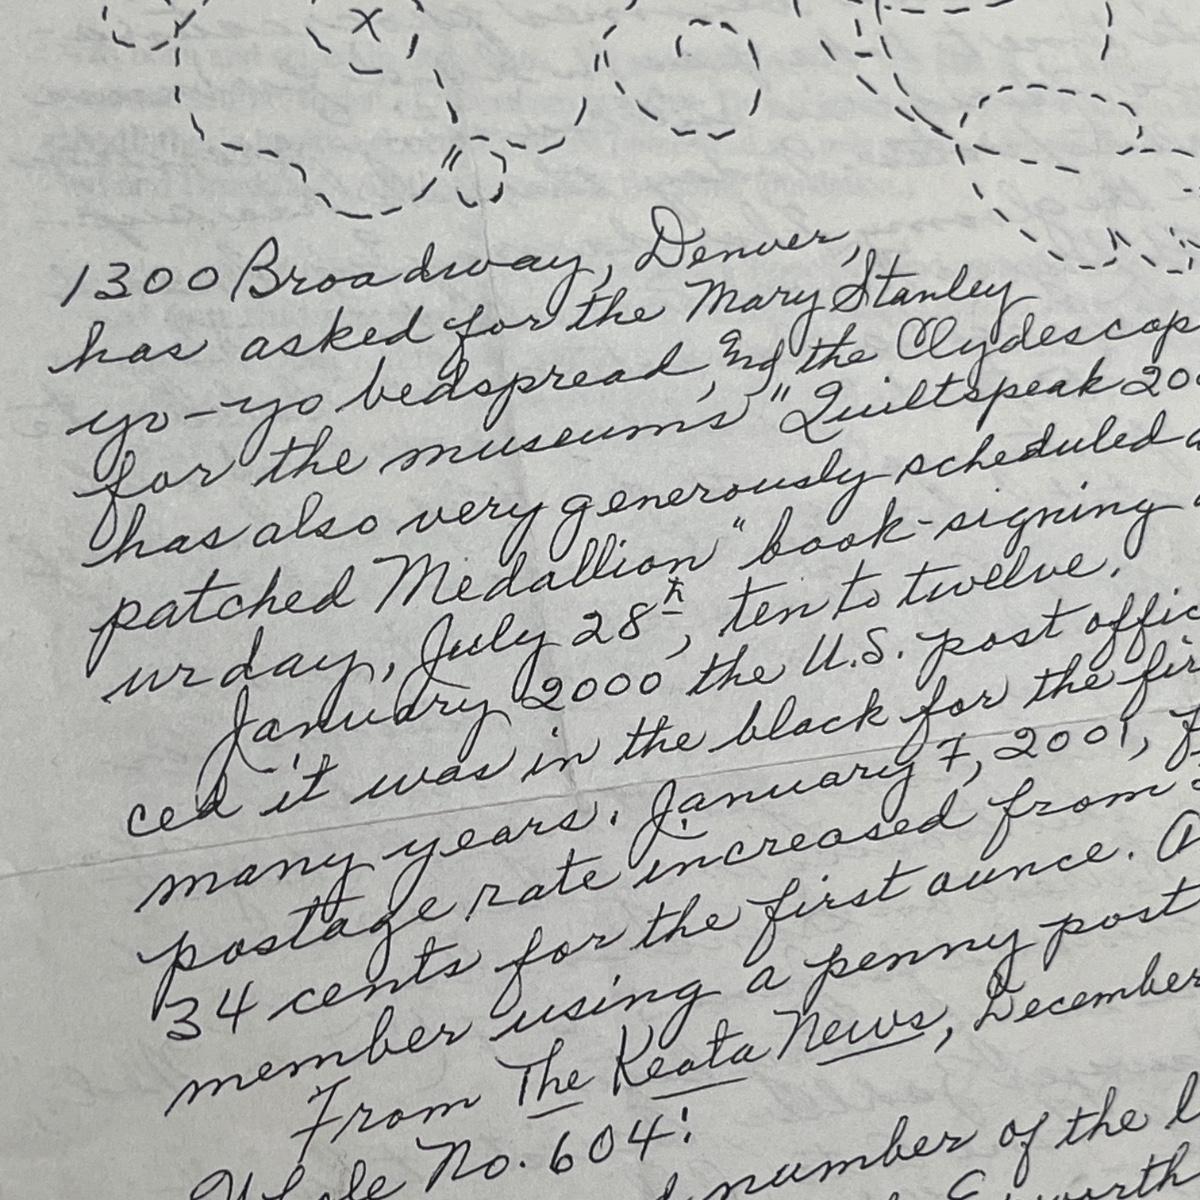 1300 Broadway, Denver,
has asked for the Mary Stanley
yo-yo bedspread, and the Clydescop
for the museum's "Quiltspeak 200
has also very generously scheduled a
patched Medallion" book-signing
urday, July 28th, ten to twelve.
January 2000 the U.S. post offic
ced it was in the black for the fir
many years. January 7, 2001, F
postage rate increased from 3
34 cents for the first ounce. A
member using a penny post
From The Keota News, December
Whole No. 604:
number of the l